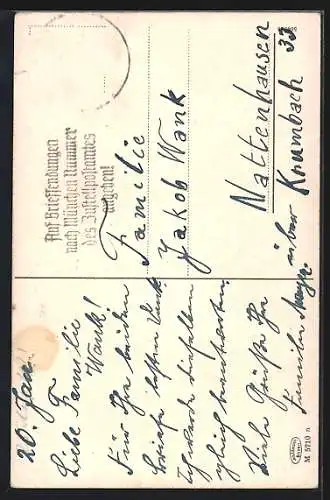 Auf Briefsendungen
nach München Nummer
des Zustellpostamtes
angeben!
Familie
Jakob Wank
Nattenhausen
über Krumbach 33
20. Jan.
Liebe Familie
Wank!
Für Ihr beiden
Briefe besten Dank
Ich werde dieselben
gleich
Viele Grüße Ihr
Familie
M 5710 n